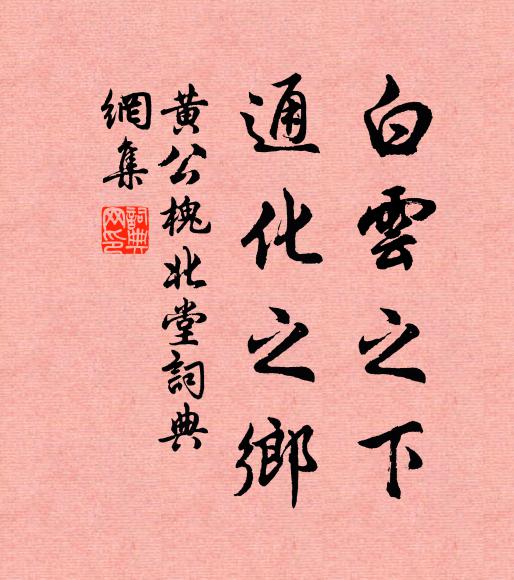 白雲之下
通化之鄉
黄公槐北堂詞典
網集
詞典
网印